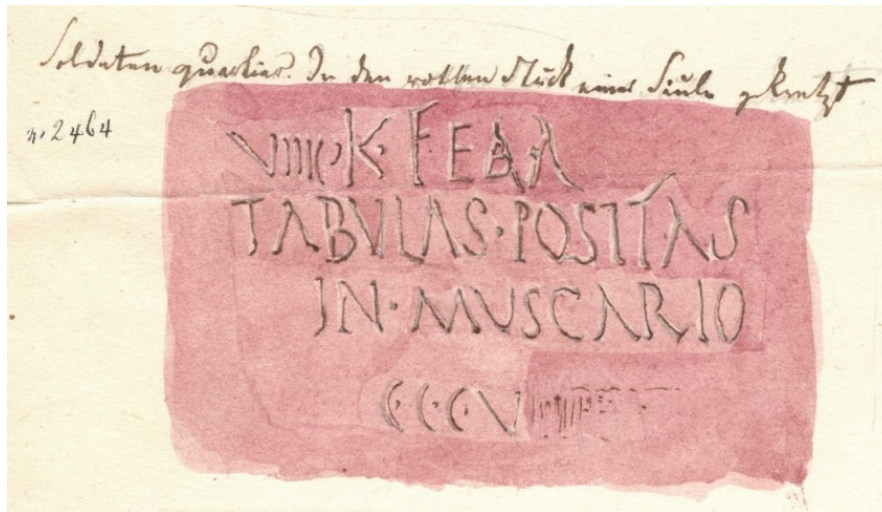 Soldaten quartier. In den rothen Stuck einer Säule gekratzt
n. 2464
VIIII·K·FEBR
TABVLAS·POSITAS
IN·MUSCARIO
CCCV